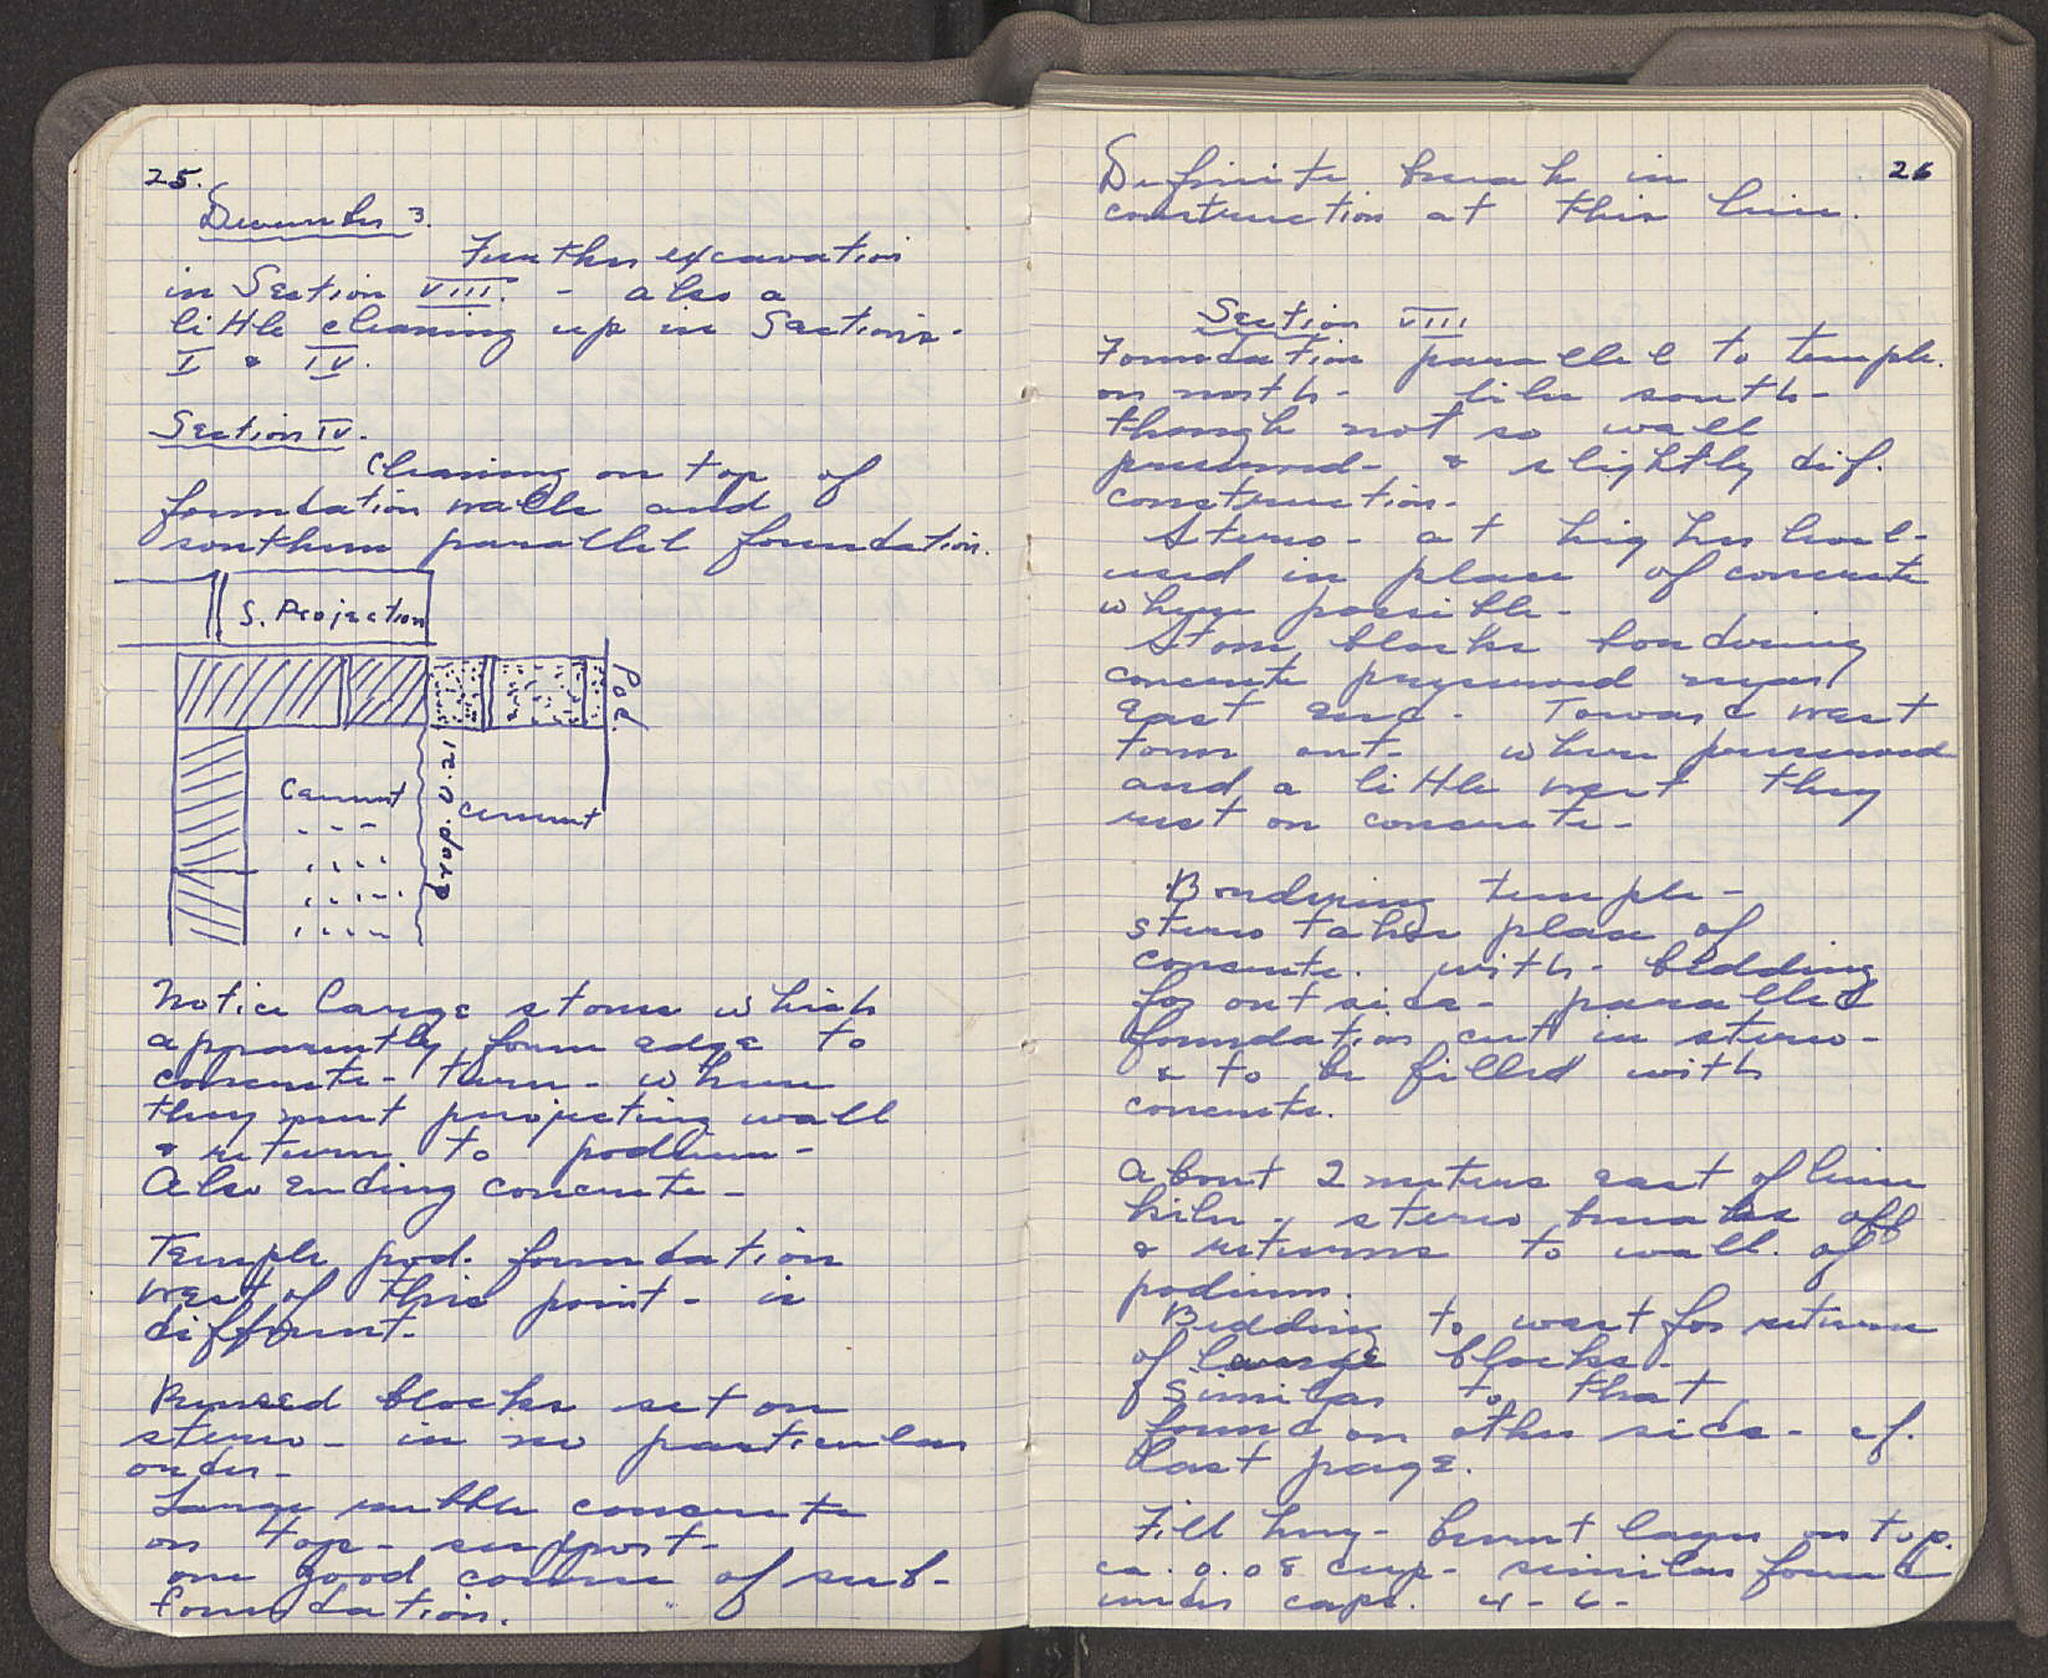 25.
December 3.
Further excavation
in Section VIII. - also a
little cleaning up in Sections.
I & IV.
Section IV.
Cleaning on top of
foundation walls and
southern parallel foundation.
S. Projection
Pod.
Cement
drop 0.21
Cement
Notice large stones which
apparently form edge to
concrete - turn - where
they meet projecting wall
& return to podium -
Also ending concrete -
Temple pod. foundation
west of this point - is
different.
Reused blocks set on
stereo - in no particular
order -
Large rubble concrete
on top - support -
one good course of sub-
foundation.
26
Definite break in
construction at this line.
Section VIII
Foundation parallel to temple.
on north - like south -
though not so well
preserved - & slightly dif.
construction.
Stereo - at higher level -
used in place of concrete
where possible -
Stone blocks bordering
concrete preserved near
east end - Toward west
torn out - where preserved
and a little west they
rest on concrete -
Bordering temple -
stereo takes place of
concrete. with - bedding
for outside - parallel
foundation cut in stereo -
& to be filled with
concrete.
About 2 meters east of lime
kiln - stereo breaks off
& returns to wall of
podium.
Bedding to west for return
of large blocks -
similar to that
found on other side - cf.
last page.
Fill here - burnt layer on top.
ca. 0.08 deep - similar found
under caps. 4 - 6 -